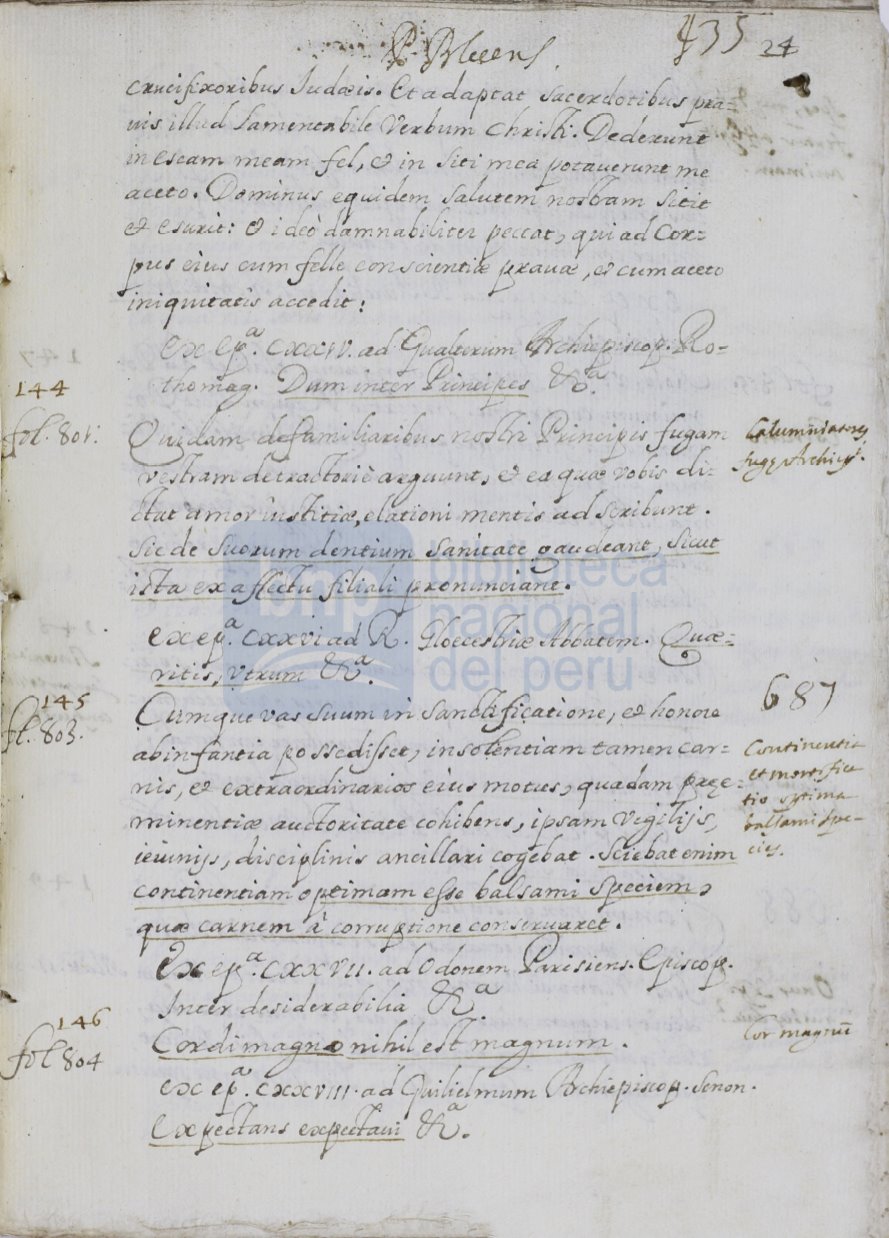 P. Blesens.
435 24
crucifixoribus Iudæis. Et adaptat sacerdotibus pra=
uis illud lamentabile Verbum Christi. Dederunt
in escam meam fel, & in siti mea potauerunt me
aceto. Dominus equidem salutem nostram sitit
& esurit: & ideò damnabiliter peccat, qui ad Cor=
pus eius cum felle conscientiæ prauæ, & cum aceto
iniquitatis accedit:
Ex epᵃ. CXXIV. ad Gualterum Archiepiscop. Ro=
thomag. Dum inter Principes &ᵃ.
144
fol. 801.
Quidam de familiaribus nostri Principis fugam
vestram detractoriè arguunt, & ea quæ vobis di=
ctat amor iustitiæ, elationi mentis adscribunt.
Sic de suorum dentium sanitate gaudeant, sicut
ista ex affectu filiali pronunciant.
Calumniatores
fugę Archiep.
Ex epᵃ. CXXVI ad R. Glocestriæ Abbatem. Quæ=
ritis, Vtrum &ᵃ.
145
fol. 803.
Cumque vas suum in sanctificatione, & honore
ab infantia possedisset, insolentiam tamen car=
nis, & extraordinarios eius motus, quadam pręe=
minentiæ auctoritate cohibens, ipsam Vigilijs,
ieiunijs, disciplinis ancillari cogebat. Sciebat enim
continentiam optimam esse balsami speciem,
quæ carnem à corruptione conseruaret.
687
Continentia
et mortifica
tio optima
balsami spe-
cies.
Ex epᵃ. CXXVII. ad Odonem Parisiens. Episcop.
Inter desiderabilia &ᵃ.
146
fol 804
Cordi magno nihil est magnum.
Cor magnū
Ex epᵃ. CXXVIII. ad Guilielmum Archiepiscop. Senon.
Expectans expectaui &ᵃ.
bnp
biblioteca
nacional
del perú